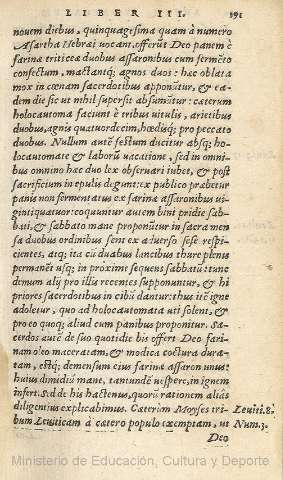 LIBER III. 191
nouem diebus, quinquagesima quam à numero
Asartha Hebræi uocant, offerũt Deo panem è
farina triticea duobus assaronibus cum fermẽto
confectum, mactantq; agnos duos: hæc oblata
mox in cœnam sacerdotibus apponũtur, & ea-
dem die sic ut nihil supersit absumũtur: cæterum
holocautoma faciunt è tribus uitulis, arietibus
duobus, agnis quatuordecim, hœdisq; pro peccato
duobus. Nullum autẽ festum ducitur absq; ho-
locautomate & laborũ uacatione, sed in omni-
bus omnino hæc duo lex obseruari iubet, & post
sacrificium in epulis degunt: ex publico præbetur
panis non fermentatus ex farinæ assaronibus ui-
ginti quatuor: coquuntur autem bini pridie sab-
bati, & sabbato mane proponũtur in sacra men
sa duobus ordinibus seni ex aduerso sese respi-
cientes, atq; ita cũ duabus lancibus thure plenis
permanẽt usq; in proximũ sequens sabbatũ: tunc
demum alij pro illis recentes supponuntur, & hi
priores sacerdotibus in cibũ dantur: thus itẽ igne
adoletur, quo ad holocautomata uti solent, &
pro eo quoq; aliud cum panibus proponitur. Sa-
cerdos autẽ de suo quotidie bis offert Deo fari-
nam oleo maceratam, & modica coctura dura-
tam, estq; demensum eius farinæ assaron unus:
huius dimidiũ mane, tantundẽ uespere, in ignem
infert. Sed de his hactenus, quorũ rationem aliàs
diligentius explicabimus. Cæterũm Moyses tri-
bum Leuiticam à cætero populo exemptam, ut
Leuiti. 8.
Num. 3.
Deo
Ministerio de Educación, Cultura y Deporte